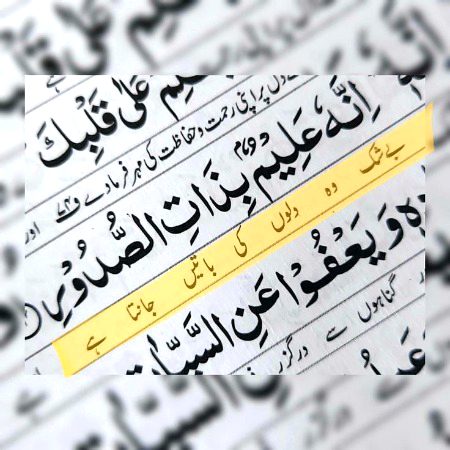 عَلٰى قَلْبِكَ
دل پر اپنی رحمت و حفاظت کی مہر فرما دے
اِنَّهٗ عَلِيْمٌۢ بِذَاتِ الصُّدُوْرِ
بے شک وہ دلوں کی باتیں جانتا ہے
وَ يَعْفُوْا عَنِ السَّيِّاٰ
گناہوں سے درگزر